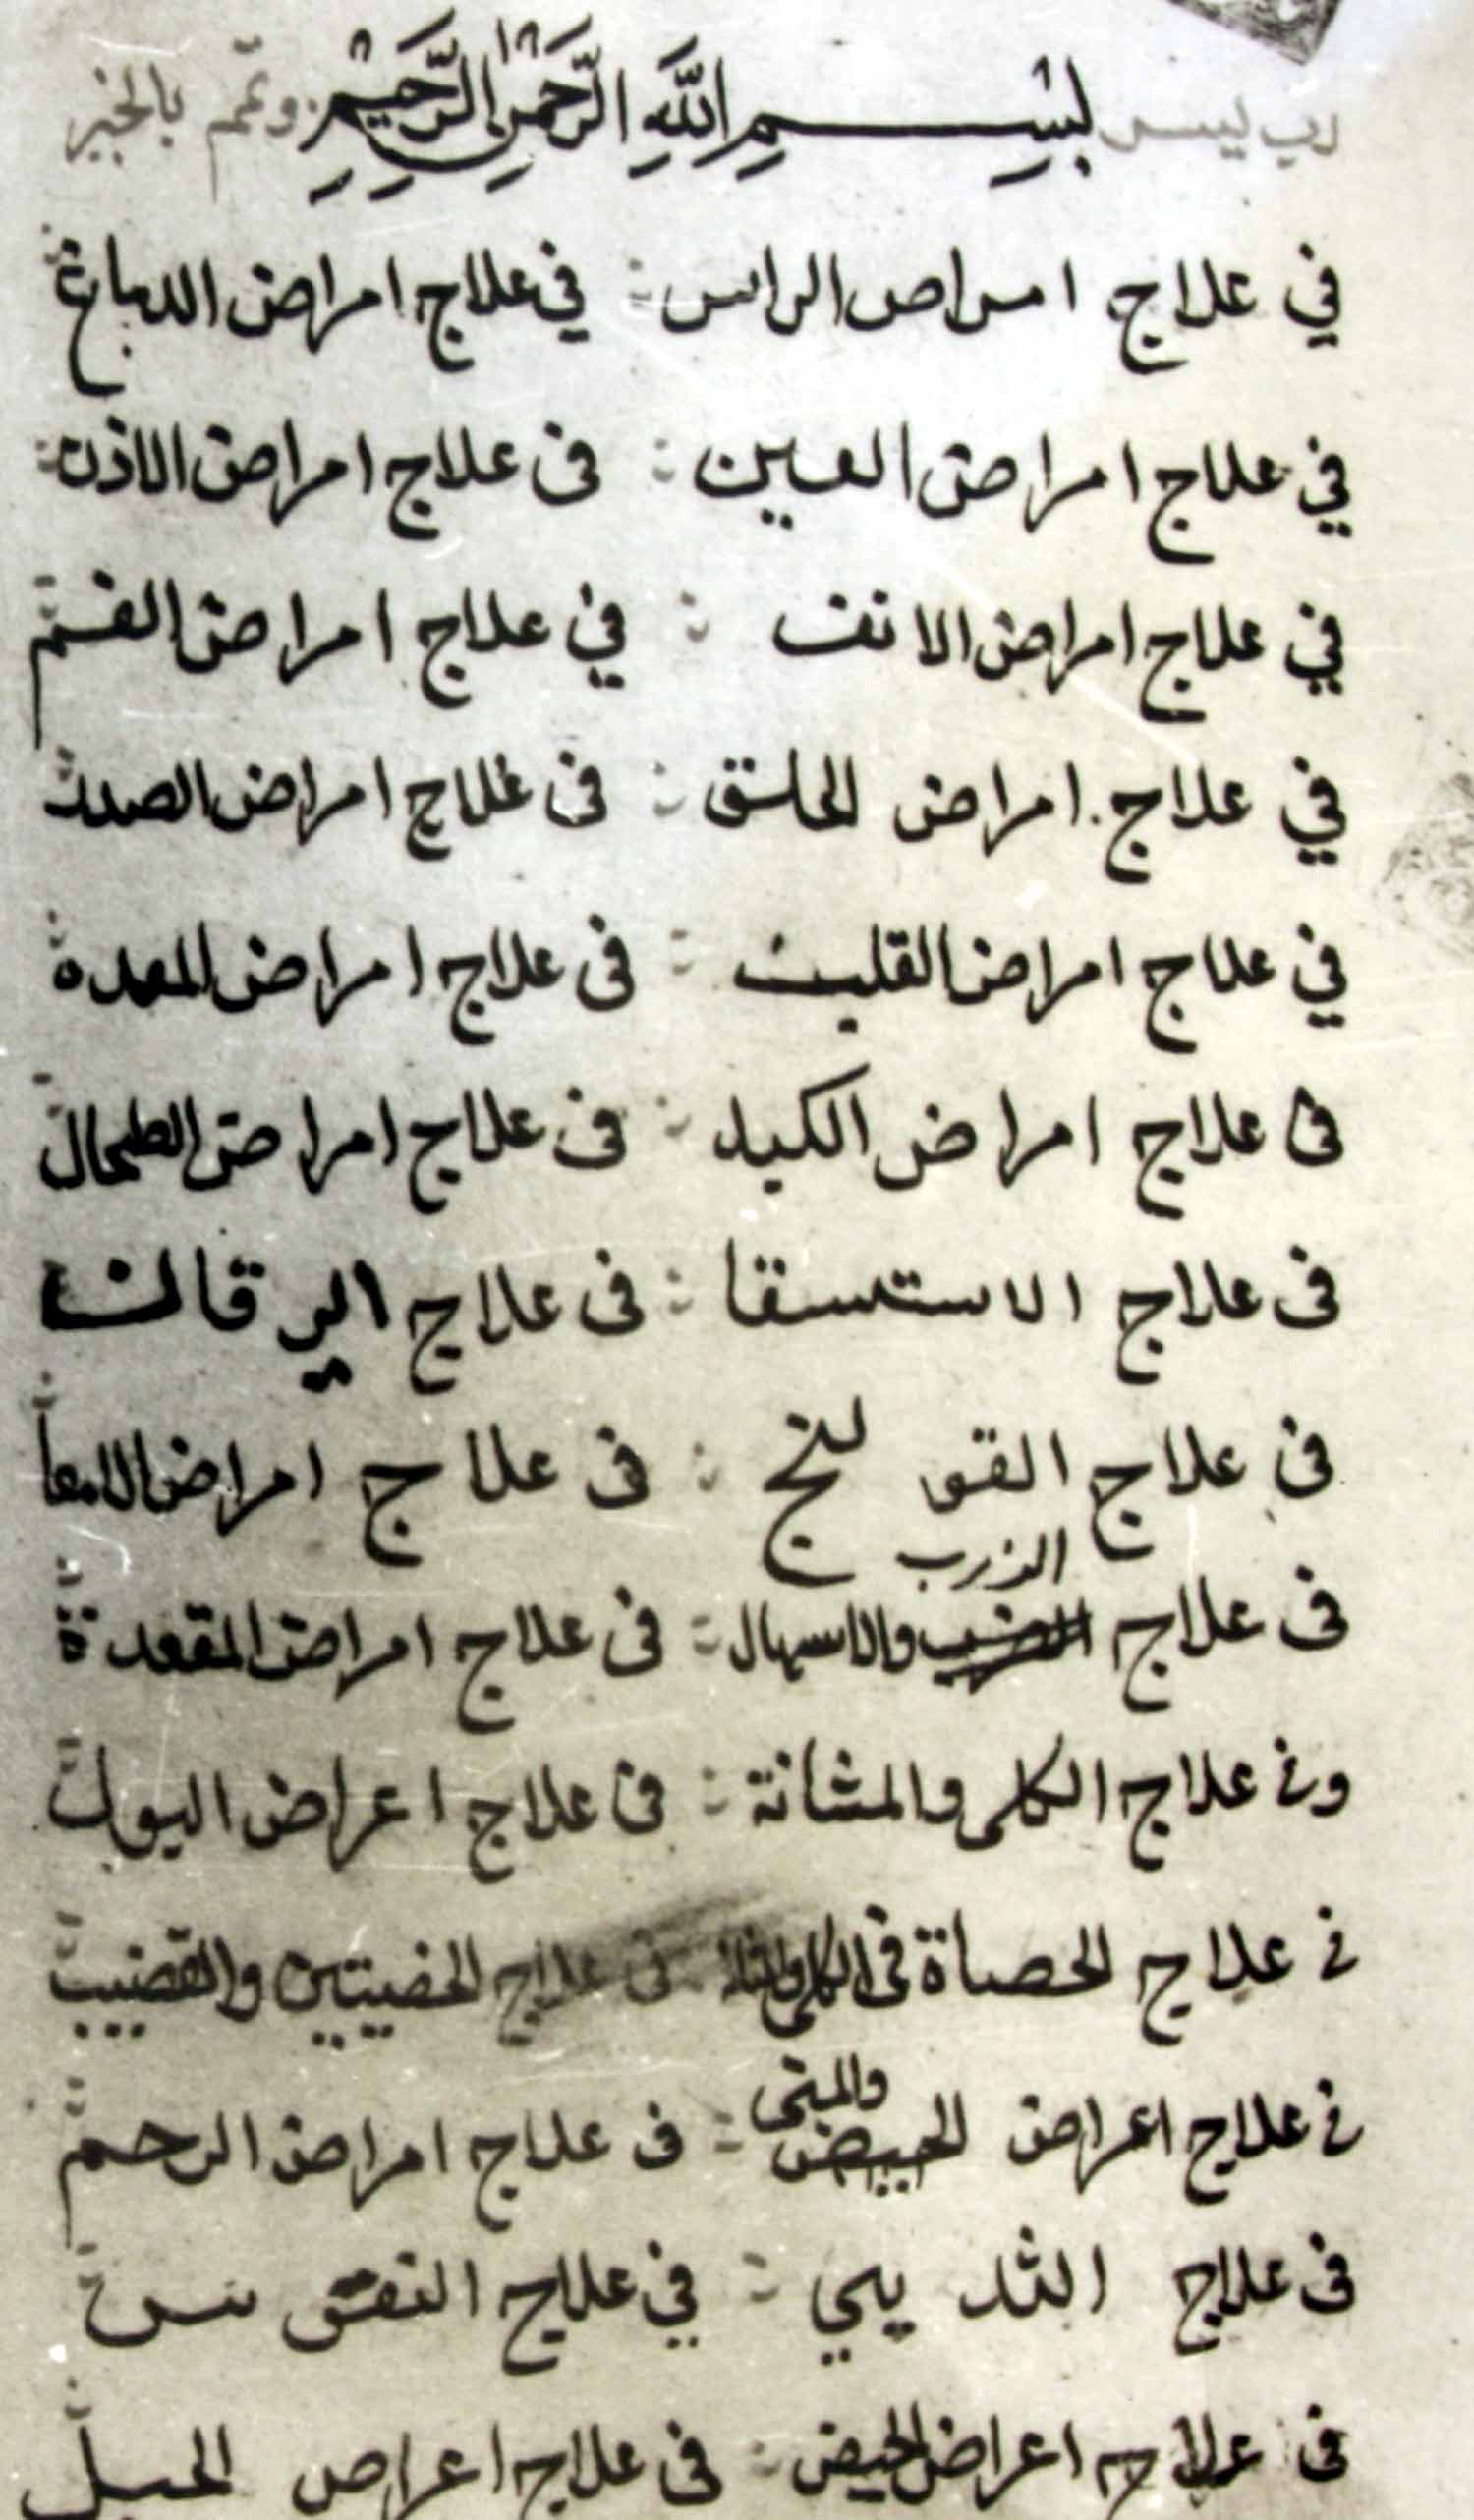 رب يسر بسم الله الرحمن الرحيم وتمم بالخير
في علاج امراض الراس في علاج امراض الدماغ
في علاج امراض العين فى علاج امراض الاذن
في علاج امراض الانف في علاج امراض الفم
في علاج امراض الحلق فى علاج امراض الصدر
في علاج امراض القلب فى علاج امراض المعدة
فى علاج امراض الكبد فى علاج امراض الطحال
فى علاج الاستسقا فى علاج اليرقان
فى علاج القولنج فى علاج امراض الامعا
الذرب
فى علاج والاسهال فى علاج امراض المقعدة
وفى علاج الكلى والمثانة فى علاج اعراض البول
فى علاج الحصاة فى الكلى والمثانة فى علاج الخصيتين والقضيب
والمنى
فى علاج اعراض فى علاج امراض الرحم
فى علاج الثديي في علاج النقرس
فى علاج اعراض الحيض فى علاج اعراض الحبل